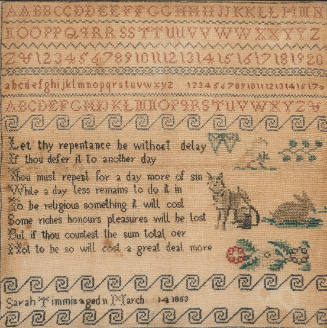 AABBCCDDEEFFGGHHIIJJKKLLMMN
NOOPPQQRRSSTTUUVVWWXXYYZ
Z & 1 2 3 4 5 6 7 8 9 10 11 12 13 14 15 16 17 18 19 20
abcdefghijklmnopqrstuvwxyz 1 2 3 4 5 6 7 8 9 10 11 12 13 14 15 16 17
ABCDEFGHIJKLMNOPQRSTUVWXYZ
Let thy repentance be without delay
If thou defer it to another day
Thou must repent for a day more of sin
While a day less remains to do it in
To be religious something it will cost
Some riches honours pleasures will be lost
But if thou countest the sum total oer
Not to be so will cost a great deal more
Sarah Timmis aged 11 March 14 1863